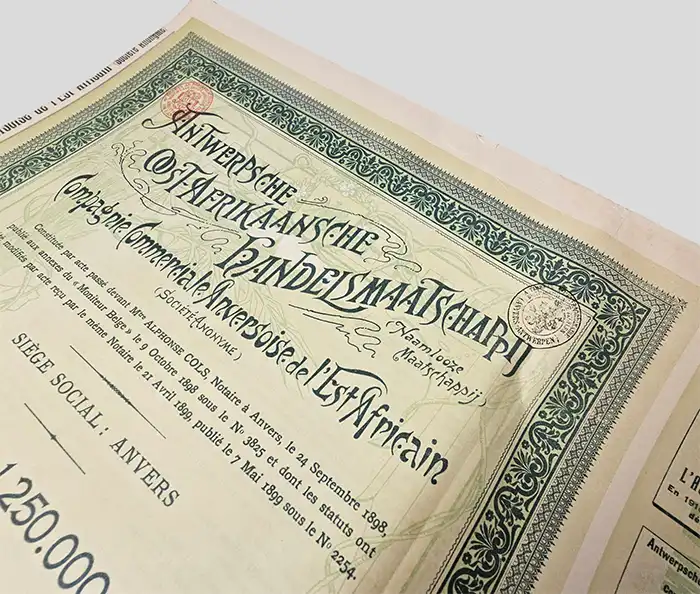 Antwerpsche
Oost-Afrikaansche
Handelsmaatschappij
(Naamlooze
Maatschappij)
Compagnie Commerciale Anversoise de l'Est Africain
(Société Anonyme)
Constituée par acte passé devant Mtre ALPHONSE COLS, Notaire à Anvers, le 24 Septembre 1898,
publié aux annexes du « Moniteur Belge » le 9 Octobre 1898 sous le No 3825 et dont les statuts ont
modifiés par acte reçu par le même Notaire le 21 Avril 1899, publié le 7 Mai 1899 sous le No 2254.
SIÈGE SOCIAL: ANVERS
250.000
ANTWERPEN
L'A
En 191
Antwerpsch